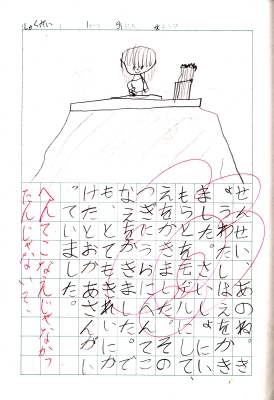 せんせい、あのね。き
ょうわたしはえをかき
ました。さいしょにい
もうとをモデルにして、
えをかきました。その
つぎにうらにへんてこ
なえをかきました。で
も、とてもきれいにか
けたとおかあさんがい
っていました。
へんてこなえじゃなかっ
たんじゃない